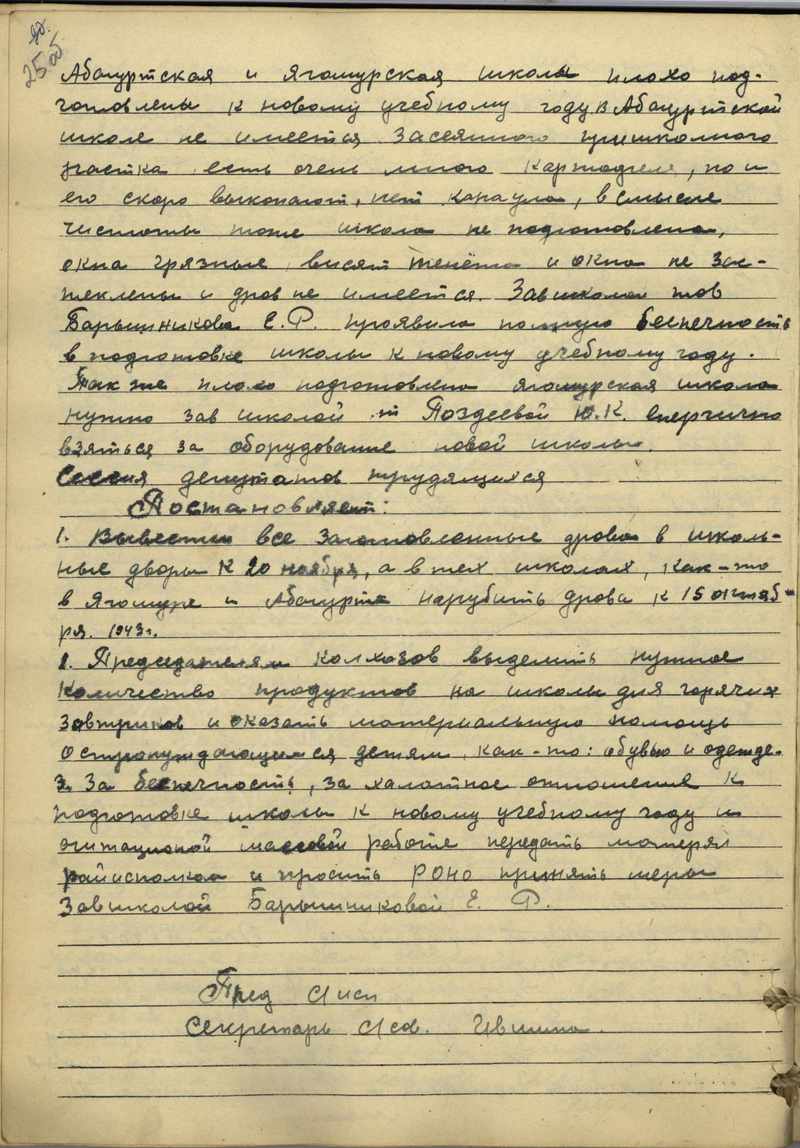 25об
Абагуртская и Ягошурская школы плохо под-
готовлены к новому учебному году в Абагуртской
школе не имеется засеянного пришкольного
участка есть очень много картофеля, но и
его скоро выкопают, нет караула, в смысле
чистоты тоже школа не подготовлена,
окна грязные висят тенёта и окна не зас-
теклены и дров не имеется. Завшколой тов
Барышникова Е.Р. проявила полную беспечность
в подготовке школы к новому учебному году.
Так же плохо подготовлена ягошурская школа
нужно зав школой т Поздеевой Ю.К. енергично
взяться за оборудование новой школы.
Сессия депутатов трудящихся
Постановляет:
1. Вывести все заготовленные дрова в школь-
ные дворы к 20 ноября, а в тех школах, как-то
в Ягошуре и Абагурте нарубить дрова к 15 октяб-
ря. 1943 г.
2. Председателям колхозов выделить нужное
количество продуктов на школы для горячих
завтриков и оказать материальную помощь
остронуждающимся детям, как-то: обувью и одежде.
3. За беспечность, за халатное отношение к
подготовке школы к новому учебному году и
агитационой массовой работе передать матерял
райисполком и просить РОНО принять меры
Завшколой Барышниковой Е. Р.
Пред
Секретарь Ившина.